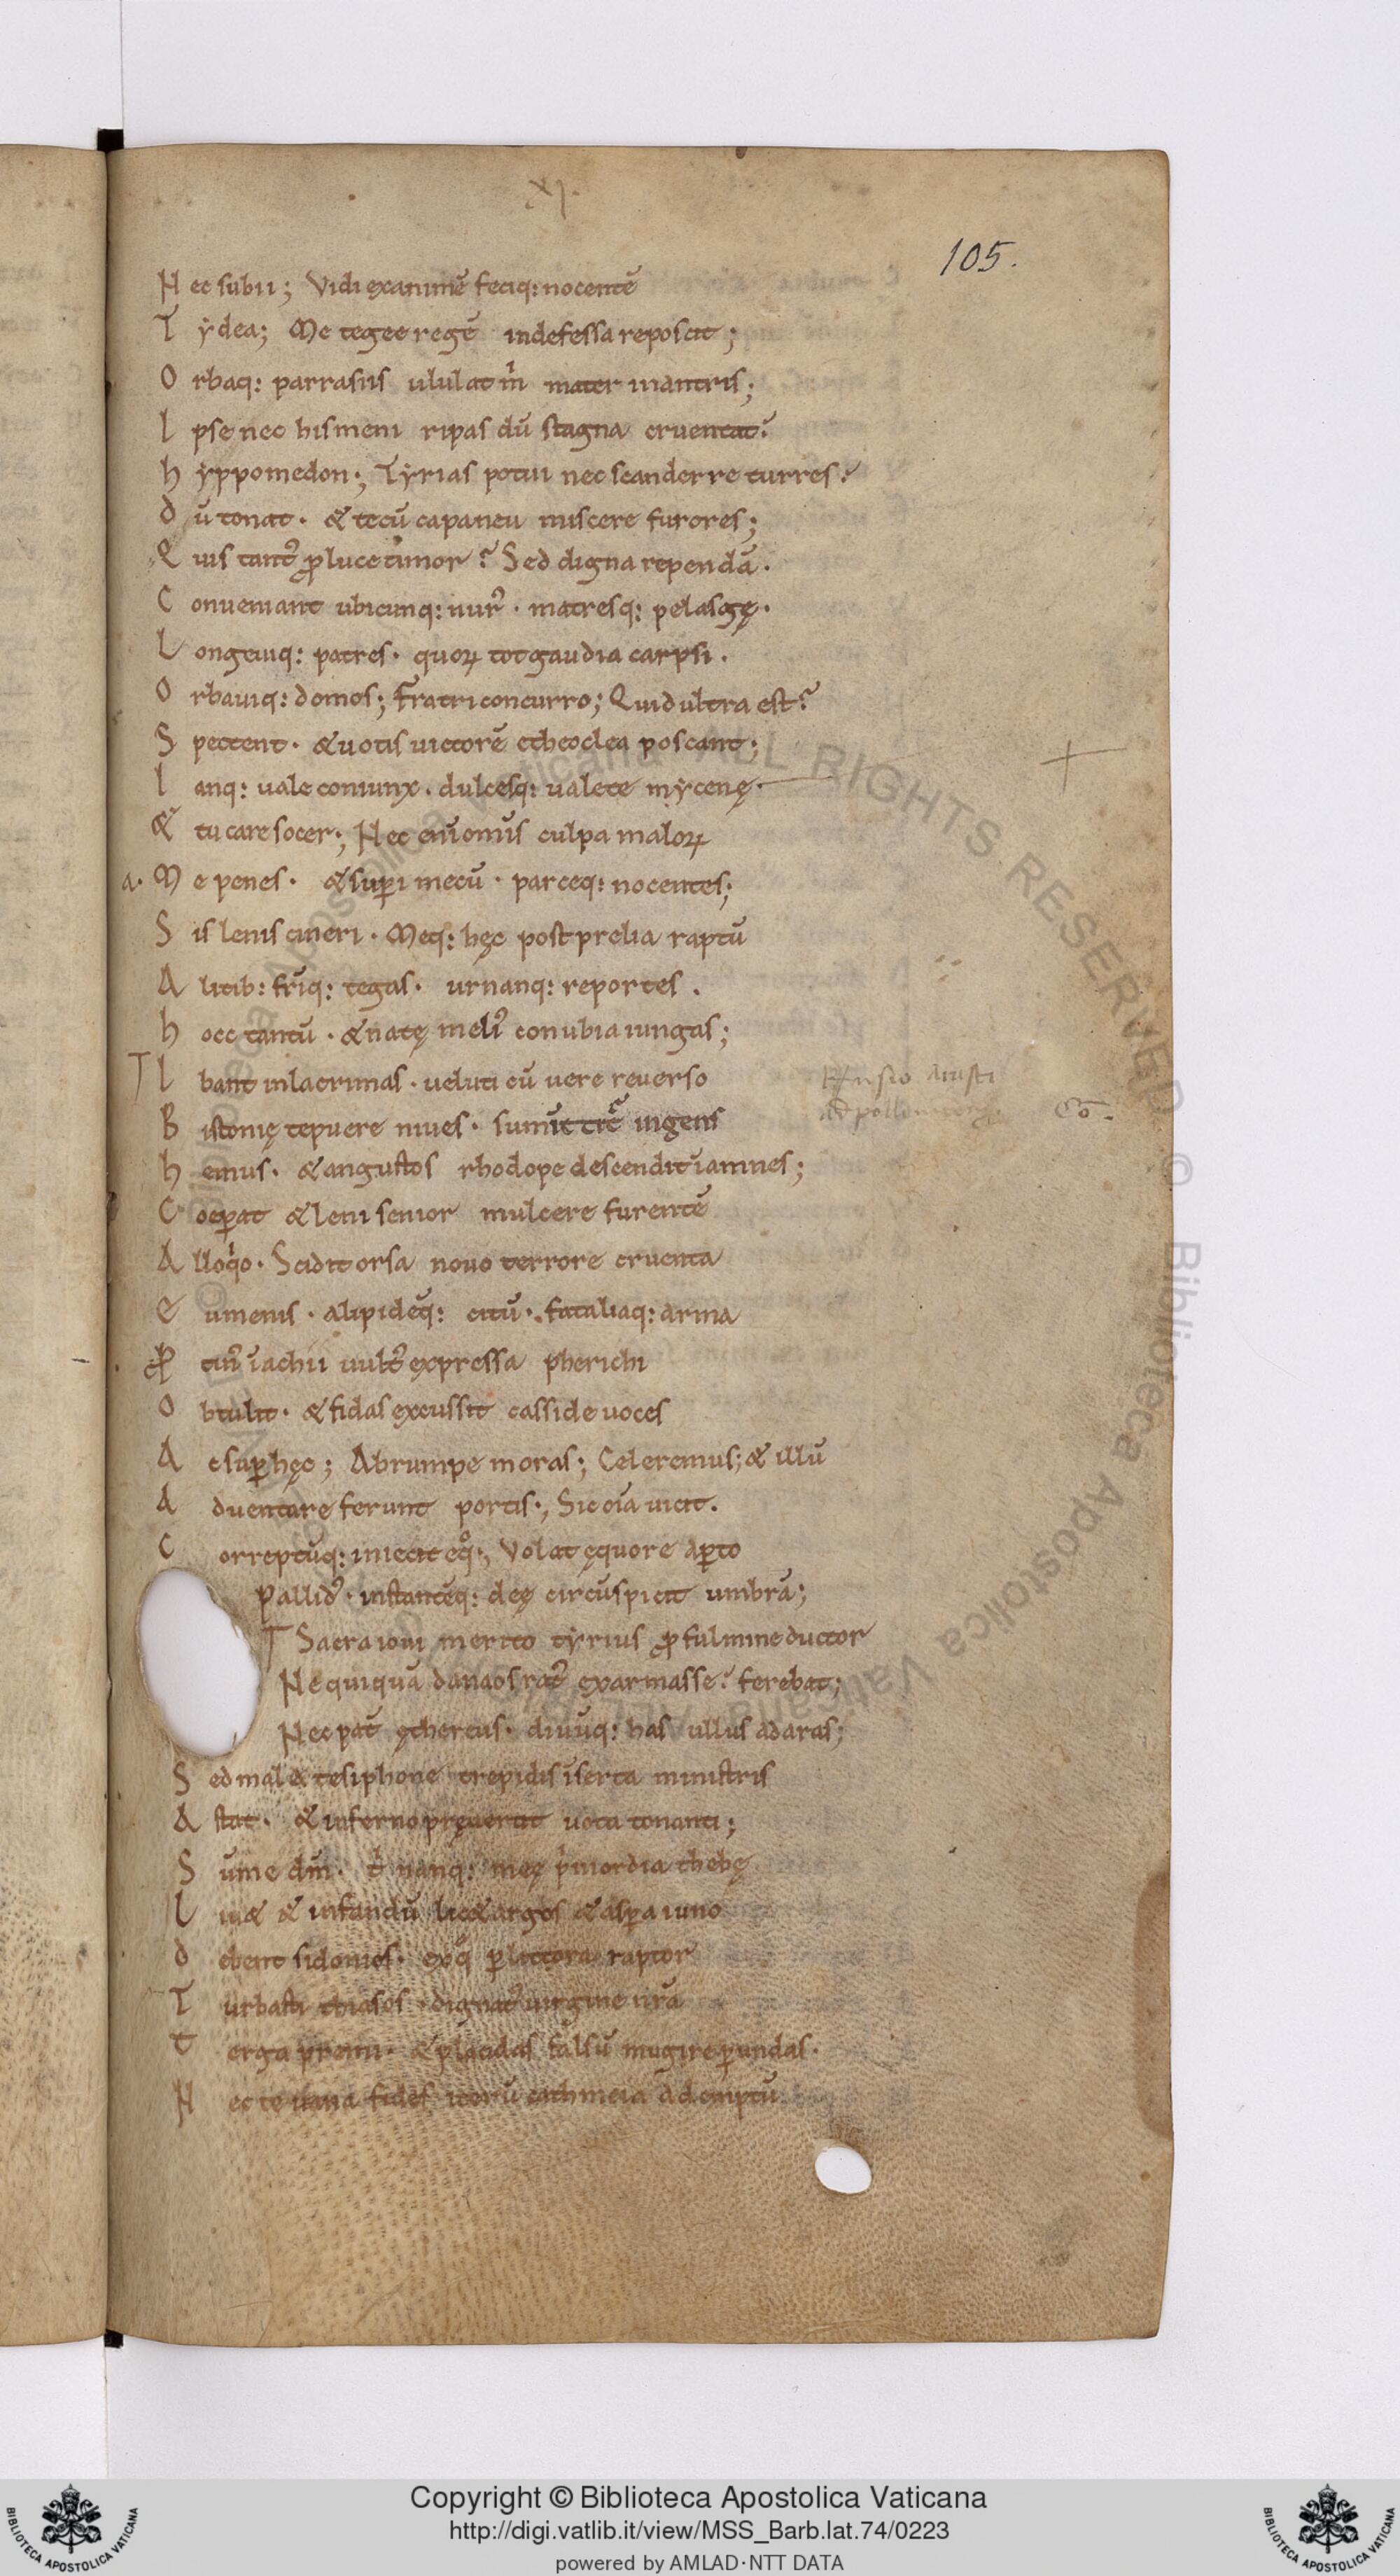 XI.
105.
Nec subii; Vidi exanimē feciq: nocentē
Tydea; Me tegee regē indefessa reposcit;
Orbaq: parrasiis ululat m̄ mater in antris;
Ipse nec hismeni ripas dū stagna cruentat?
hyppomedon; Tyrias potui nec scanderre turres?
dū tonat. & tecū capaneu miscere furores;
Quis tantꝰ ꝓ luce timor? Sed digna rependā.
Conueniant ubicunq: nurꝰ. matresq: pelasgę.
Longeuiq: patres. quoꝝ tot gaudia carpsi.
Orbauiq: domos; Fratri concurro; Quid ultra est?
Spectent. & uotis uictorē etheoclea poscant;
Ianq: uale coniunx. dulcesq: ualete mycenę.
& tu care socer; Nec enī omīs culpa maloꝝ
a. Me penes. & suꝑi mecū. parceq: nocentes;
Sis lenis cineri. Meq: hęc post prelia raptū
Alitib: fr̄iq: tegas. urnanq: reportes.
hoc tantū. & natę meliꝰ conubia iungas;
T Ibant in lacrimas. ueluti cū uere reuerso
Bistonię tepuere niues. ingens
hemus. & angustos rhodope descendit īamnes;
Coeꝑat & leni senior mulcere furentē
Alloqͥo. Scidit orsa nouo terrore cruenta
eumenis. alipidēq: citū. fataliaq: arma
ꝓtinꝰ īachii uultꝰ expressa pherichi
Obtulit. & fidas excussit casside uoces
Ac suꝑ hęc; Abrumpe moras; Celeremus; & illū
Aduentare ferunt portis; Sic oīa uicit.
Correptūq: iniecit eqͦ; Volat ęquore aꝑto
Pallidꝰ. instantēq: deę circūspicit umbrā;
T Sacra ioui merito tyrius ꝓ fulmine ductor
Nequiquā danaos ratꝰ exarmasse? ferebat;
Nec pat̄ ęthereus. diuūq: has ullus ad aras;
Sed mala tesiphone trepidis īserta ministris
Astat. & inferno pręuertit uota tonanti;
Sūme dm̄. tͥ nanq: meę pͥmordia thebę
Liu& & infandū lic& argos & asꝑa iuno
debent sidonios. exqͦ ꝑ littora raptor
Turbasti thiasos. dignatꝰ uirgine nr̄a
Terga premi. & placidas falsū mugire ꝑ undas.
Nec te uana fides iterū cathmeia ademptū
Cō.
Copyright © Biblioteca Apostolica Vaticana
http://digi.vatlib.it/view/MSS_Barb.lat.74/0223
powered by AMLAD·NTT DATA
BIBLIOTECA APOSTOLICA VATICANA
BIBLIOTECA APOSTOLICA VATICANA